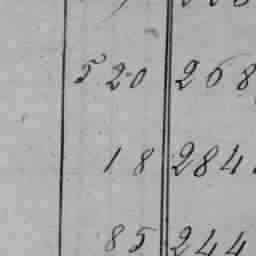 520 268
18 284
85 244